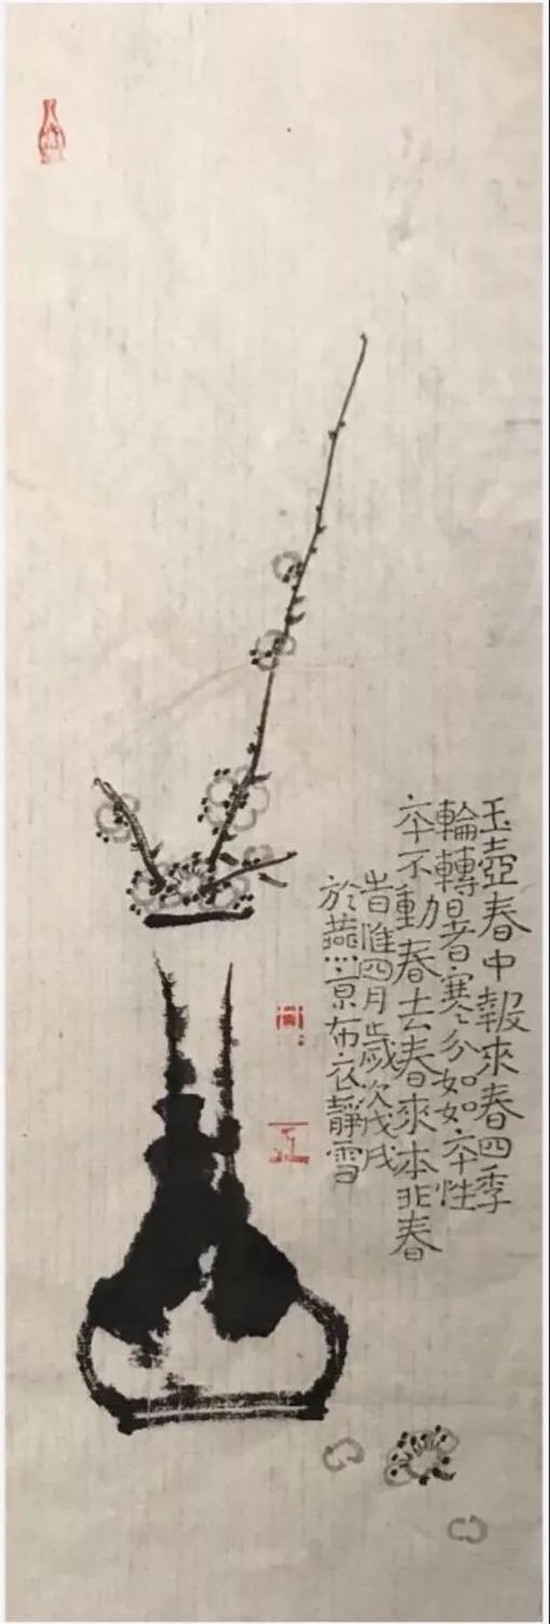 玉壺春中報來春四季
輪轉暑寒分如如夲性
夲不動春去春來本非春
旹惟四月歲次戊戌
於燕京布衣靜雪